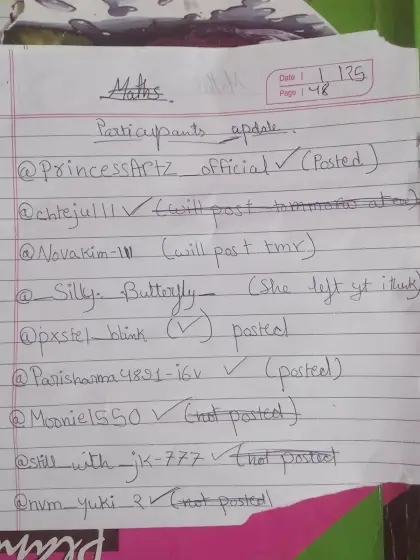 Maths.
Date | 1 125
Page | 48
Participants update.
@PrincessArtz_official ✓ (Posted)
@chteju111 ✓ (will post tommorow
@Novakim-111 (will post tmr)
@_Silly. Butterfly_ (She left yt ithink)
@pxstel_blink (✓) posted
@Parisharma4891-i6v ✓ (posted)
@Moonie1550 ✓ (not posted)
@still_with_jk-777 ✓ (not posted
@nvm_yuki_2 ✓ (not posted)